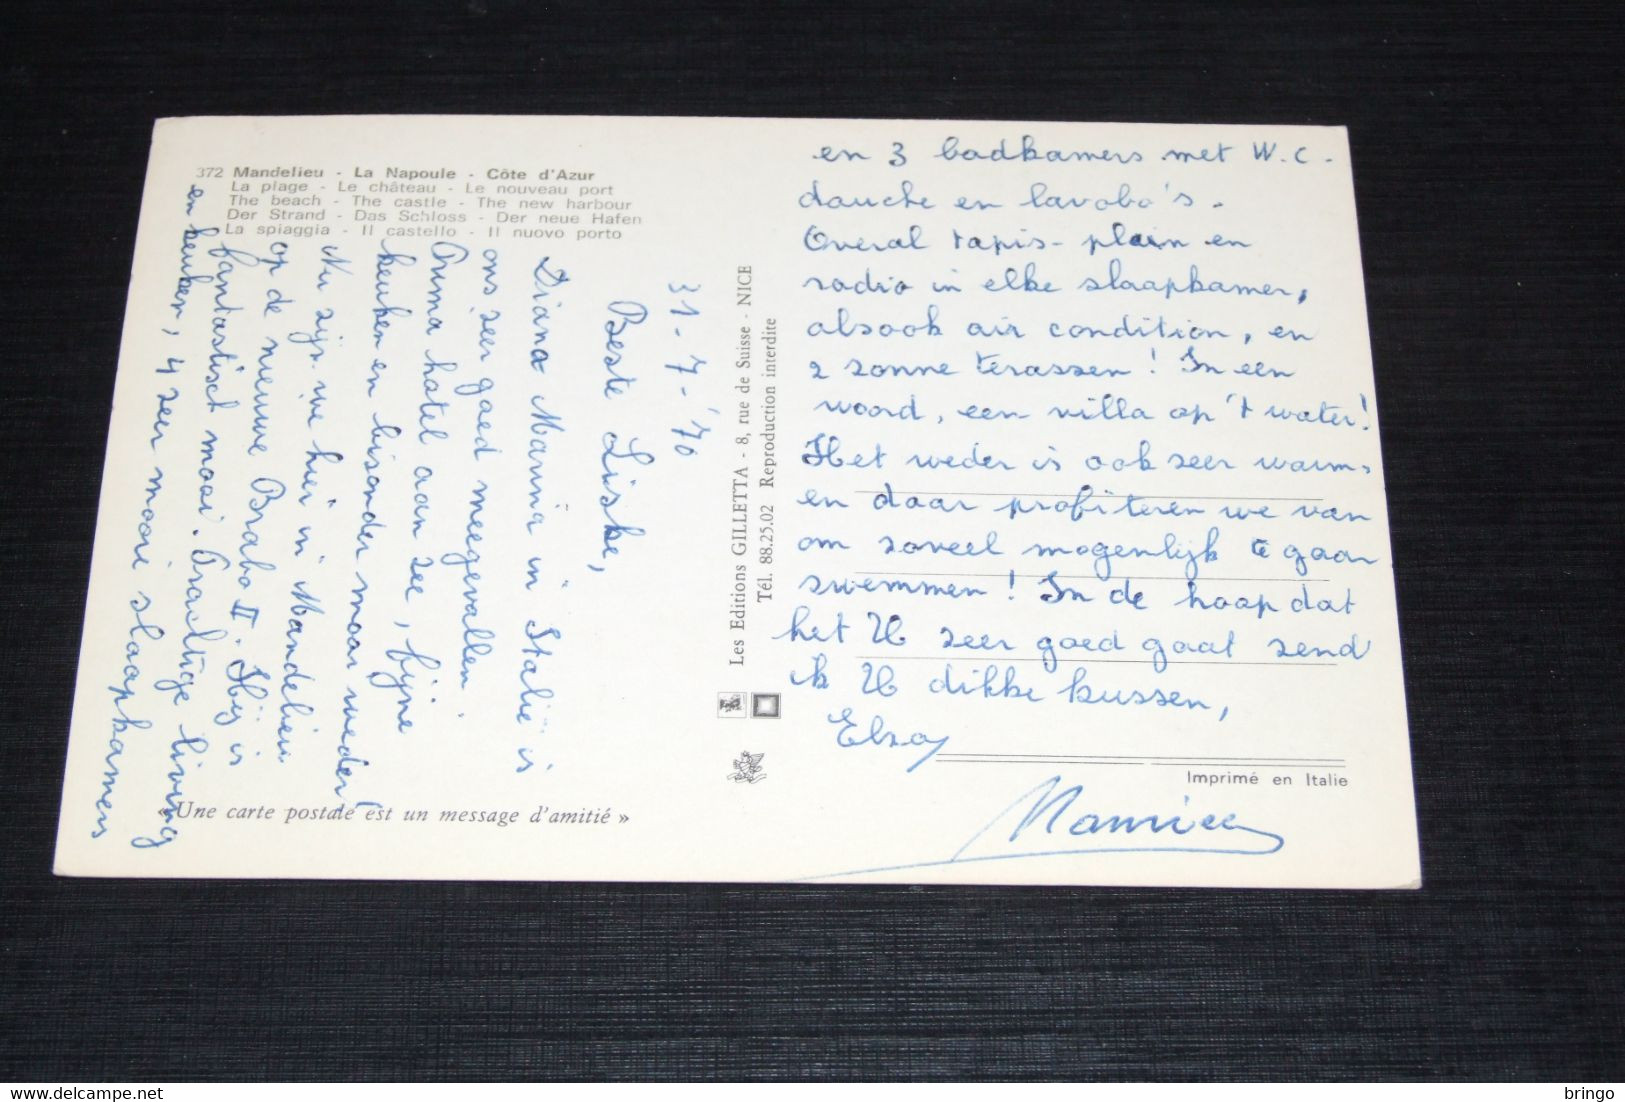 372 Mandelieu - La Napoule - Côte d'Azur
La plage - Le château - Le nouveau port
The beach - The castle - The new harbour
Der Strand - Das Schloss - Der neue Hafen
La spiaggia - Il castello - Il nuovo porto
31-7-'70
Beste Liske,
Diana Marina in Italië is
ons zeer goed meegevallen.
Prima hotel aan zee, fijne
keuken en bisonder maar weder!
Nu zijn we hier in Mandelieu
op de nieuwe Brabo II. Hij is
fantastisch mooi. Prachtige living
en keuken, 4 zeer mooie slaapkamers
« Une carte postale est un message d'amitié »
Les Editions GILLETTA - 8, rue de Suisse - NICE
Tél. 88.25.02 Reproduction interdite
en 3 badkamers met W.C.
douche en lavabo's.
Overal tapis-plain en
radio in elke slaapkamer,
alsook air condition, en
2 zonne terassen! In een
woord, een villa op 't water!
Het weder is ook zeer warm,
en daar profiteren we van
om zoveel mogenlijk te gaan
swemmen! In de hoop dat
het U zeer goed gaat zend
ik U dikke kussen,
Imprimé en Italie
bringo